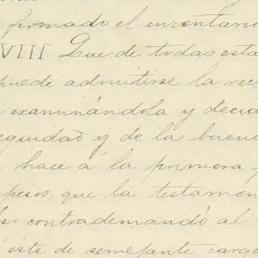 firmado el inventario
VIII. Que de todas esta
puede admitirse la rec
examinándola y decid
equidad y de la buena
hace á la primera
pesos, que la testamen
contrademandó al
éste de semejante cargo